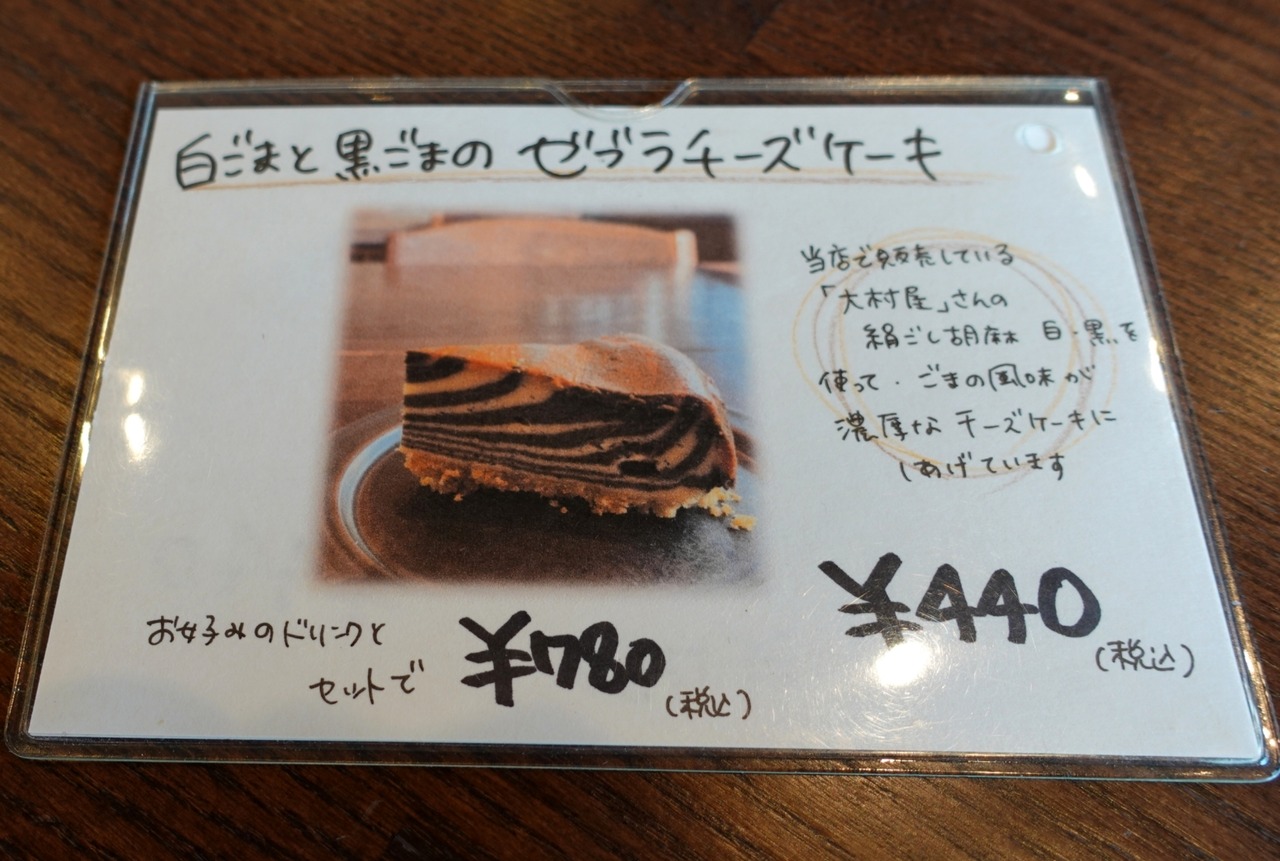 白ごまと黒ごまの ゼブラチーズケーキ
当店で販売している
「大村屋」さんの
絹ごし胡麻 白・黒を
使って、ごまの風味が
濃厚な チーズケーキに
しあげています
¥440
(税込)
お好みのドリンクと
セットで ¥780
(税込)